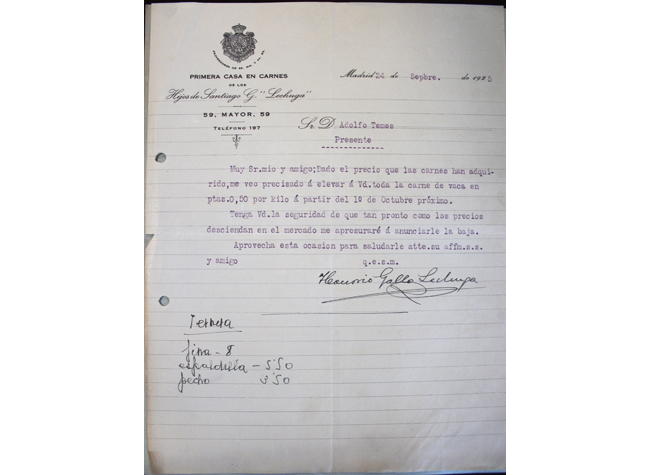 PROVEEDORES DE SS. MM. Y AA. RR.
PRIMERA CASA EN CARNES
DE LOS
Hijos de Santiago G. "Lechuga"
59, MAYOR, 59
TELÉFONO 197
Madrid 24 de Sepbre. de 1925
Sr. D. Adolfo Temes
Presente
Muy Sr.mio y amigo;Dado el precio que las carnes han adqui-
rido,me veo precisado á elevar á Vd.toda la carne de vaca en
ptas.0,50 por kilo á partir del 1º de Octubre próximo.
Tenga Vd.la seguridad de que tan pronto como los precios
desciendan en el mercado me apresuraré á anunciarle la baja.
Aprovecha esta ocasion para saludarle atte.su affm.s.s.
y amigo q.e.s.m.
Honorio Gallo Lechuga
Ternera
fina - 8
espaldilla - 5'50
pecho 3'50